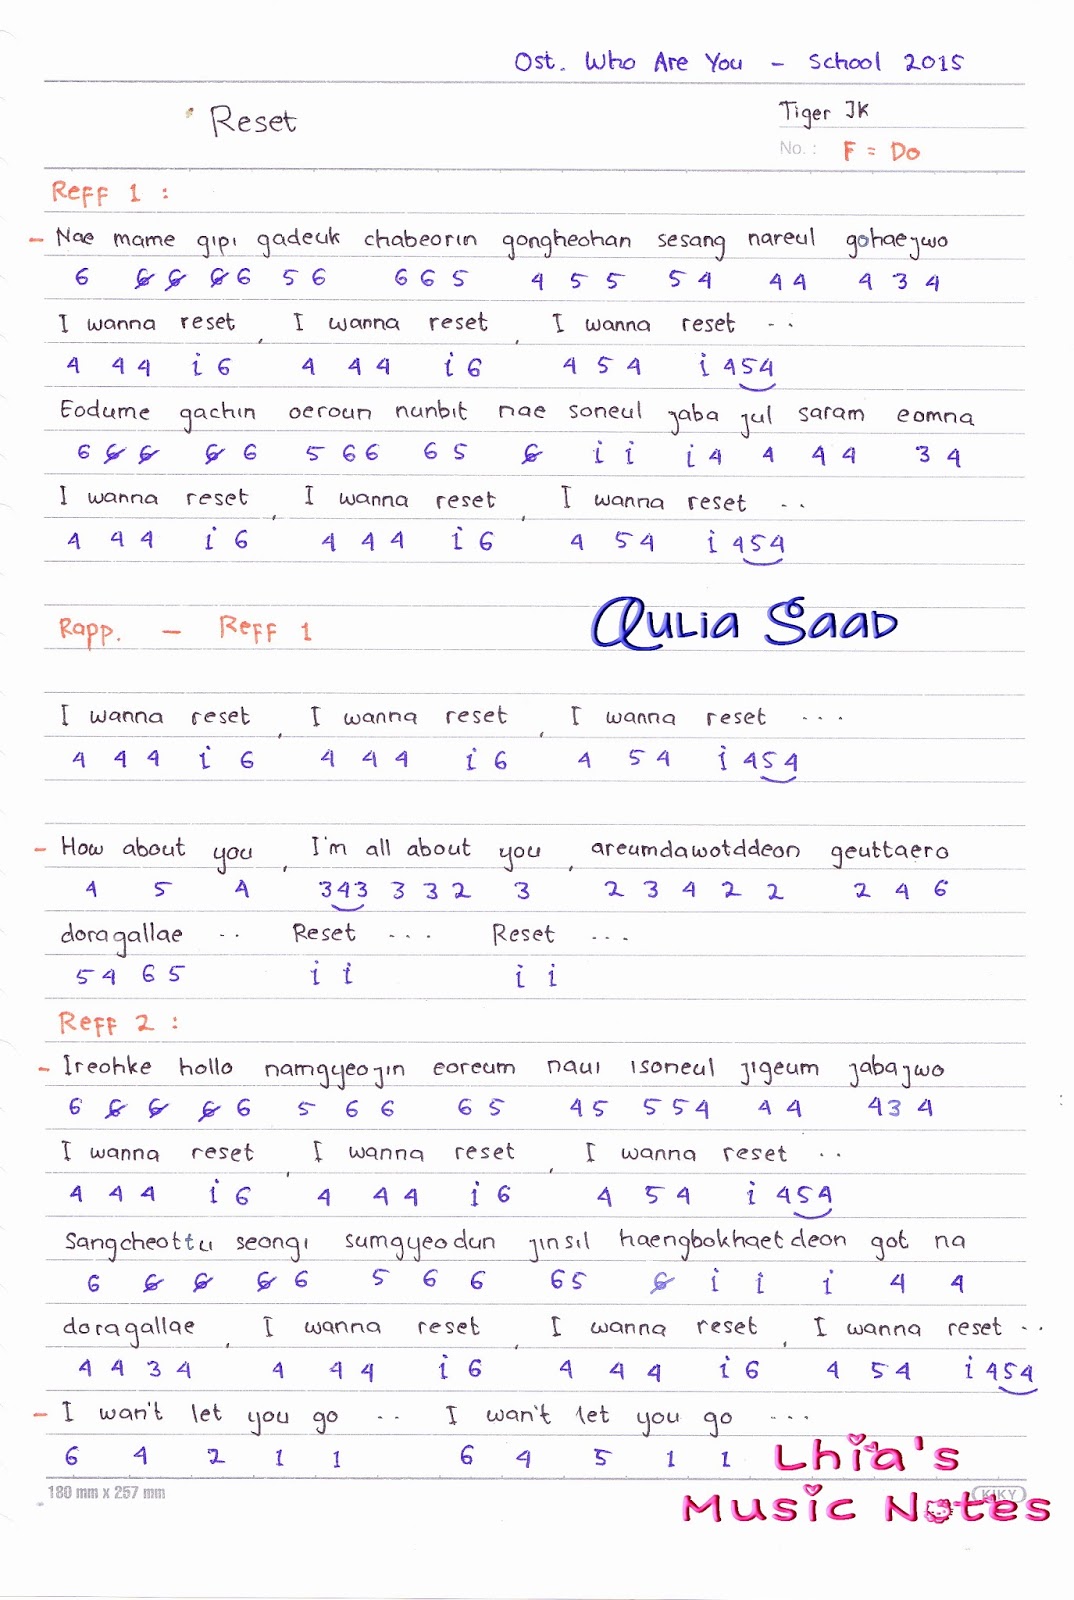 Ost. Who Are You - School 2015
Reset
Tiger JK
No. : F = Do
Reff 1 :
- Nae mame gipi gadeuk chabeorin gongheohan sesang nareul gohaejwo
6 6 6 6 6 5 6 6 6 5 4 5 5 5 4 4 4 4 3 4
I wanna reset , I wanna reset , I wanna reset ..
4 4 4 i 6 4 4 4 i 6 4 5 4 i 454
Eodume gachin oeroun nunbit nae soneul jaba jul saram eomna
6 6 6 6 6 5 6 6 6 5 6 i i i 4 4 4 4 3 4
I wanna reset , I wanna reset , I wanna reset ..
4 4 4 i 6 4 4 4 i 6 4 5 4 i 454
Rapp. - Reff 1
Qulia Saad
I wanna reset , I wanna reset , I wanna reset ...
4 4 4 i 6 4 4 4 i 6 4 5 4 i 454
- How about you , I'm all about you , areumdawotddeon geuttaero
4 5 4 343 3 3 2 3 2 3 4 2 2 2 4 6
doragallae .. Reset ... Reset ...
5 4 6 5 i i i i
Reff 2 :
- Ireohke hollo namgyeojin eoreum naui isoneul jigeum jabajwo
6 6 6 6 6 5 6 6 6 5 4 5 5 5 4 4 4 4 3 4
I wanna reset , I wanna reset , I wanna reset ..
4 4 4 i 6 4 4 4 i 6 4 5 4 i 454
Sangcheottu seongi sumgyeodun jinsil haengbokhaetdeon got na
6 6 6 6 6 5 6 6 6 5 6 i i i 4 4
doragallae , I wanna reset , I wanna reset , I wanna reset ..
4 4 3 4 4 4 4 i 6 4 4 4 i 6 4 5 4 i 454
- I wan't let you go .. I wan't let you go ...
6 4 2 1 1 6 4 5 1 1
Lhia's
Music Notes
180 mm x 257 mm
KIKY